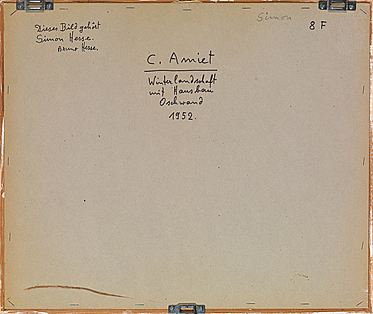 Simon
8 F
Dieses Bild gehört
Simon Hesse.
Bruno Hesse.
C. Amiet
Winterlandschaft
mit Hausbau
Oschwand
1952.